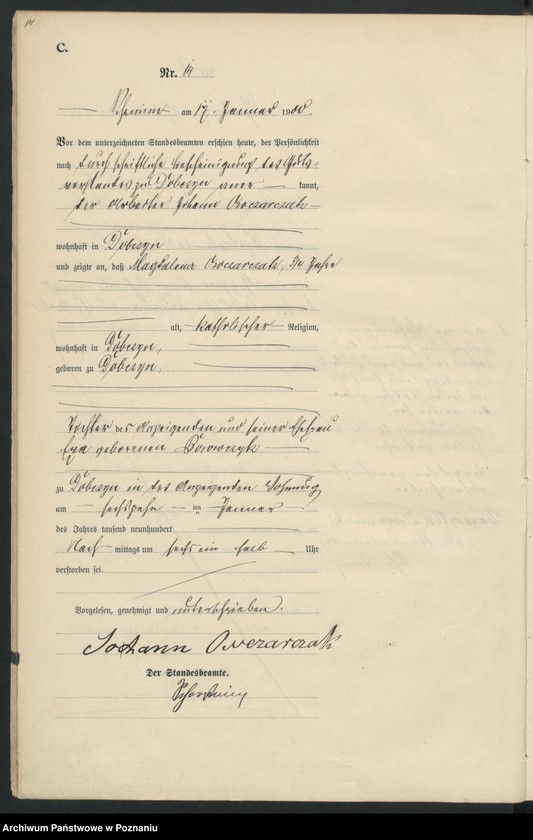 C.
Nr. 14
am 17. Januar 1900.
Vor dem unterzeichneten Standesbeamten erschien heute, der Persönlichkeit
nach durch schriftliche Bescheinigung des Guts-
vorstandes zu Dobczyn aner- kannt,
der Arbeiter Johann Owczarczak
wohnhaft in Dobczyn
und zeigte an, daß Magdalena Owczarczak, 3/4 Jahre
alt, katholischer Religion,
wohnhaft in Dobczyn,
geboren zu Dobczyn,
Tochter des Anzeigenden und seiner Ehefrau
Eva geborenen
zu Dobczyn in des Anzeigenden Wohnung
am sechszehn ten Januar
des Jahres tausend neunhundert
Nach mittags um sechs ein halb Uhr
verstorben sei.
Vorgelesen, genehmigt und unterschrieben.
Johann Owczarczak
Der Standesbeamte.
Archiwum Państwowe w Poznaniu